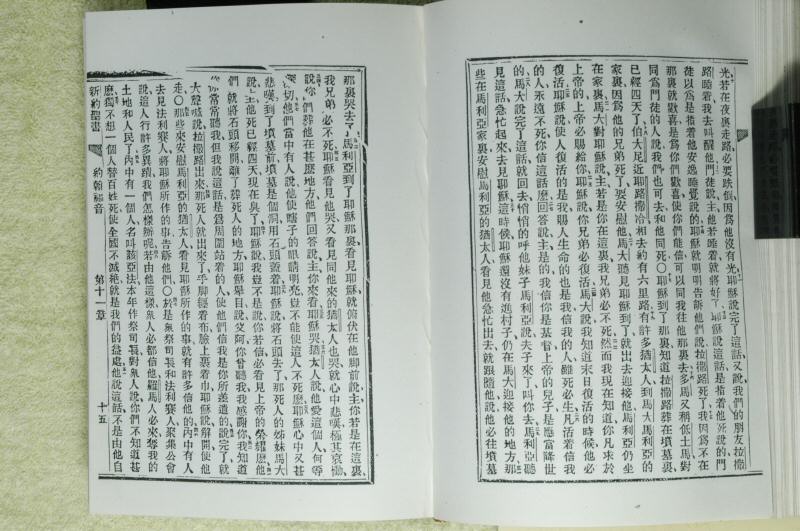 光、若在夜裏走路、必要跌倒、因爲他沒有光、耶穌說完了這話、又說、我們的朋友拉撒
路睡着、我去叫醒他、門徒說、主、他若睡着就將好了、耶穌說這話、是指着他死說的、門
徒以爲是指着他安逸睡覺說的、耶穌就明明告訴他們說、拉撒路死了、我因爲不在
那裏就歡喜、是爲你們歡喜、使你們能信、可以同我往他那裏去、多馬又稱低土馬、對
同爲門徒的說、我們也可去和他同死○耶穌到了那裏、知道拉撒路葬在墳墓裏
已經四天了、伯大尼近耶路撒冷、相去約有六里路、有許多猶太人、到馬大馬利亞
家裏、因爲他的兄弟死了、要安慰他、馬大聽見耶穌到了、就出去迎接他、馬利亞仍坐
在家裏、馬大對耶穌說、主若是你在這裏、我兄弟必不死、然而我現在知道你凡求於
上帝的、上帝必賜給你、耶穌說、你兄弟必復活、馬大說、我知道末日復活的時候他必
復活、耶穌說、使人復活的是我、賜人生命的也是我、信我的人雖死必生、凡活着信我
的人、永遠不死、你信這話麽、回答說、主、是的、我信你是基督、上帝的兒子、是應當降世
的、馬大說完了這話、就回去悄悄的呼他妹子馬利亞說、夫子來了、叫你去、馬利亞聽
見這話、急忙起來、去見耶穌、這時候耶穌還沒有進村子、仍在馬大迎接他的地方、那
些在馬利亞家裏安慰馬利亞的猶太人、看見他急忙出去、就跟隨他、說、他必往墳墓
那裏哭去、馬利亞到了耶穌那裏、看見耶穌就俯伏在他脚前、說、主若是在這裏、
我兄弟必不死、耶穌看見他哭、又看見同他來的猶太人也哭、就心中悲嘆、極其哀慟、
說、你們葬他在甚麽地方、他們回答說、主、你來看、耶穌哭、猶太人說、他愛這個人何等
切、他們當中有人說、他使瞎子的眼睛明亮、豈不能使這人不死麽、耶穌心中又甚
悲嘆、到了墳墓前、墳墓是個洞、用石頭蓋着、耶穌說、將石頭去了、那死人的姊妹馬大
說、主、他死已經四天、現在臭了、耶穌說、我豈不是說、你若信、必看見上帝的榮耀麽、他
們就將石頭移開、離了葬死人的地方、耶穌舉目說、父阿、你曾聽我、我感謝你、我知道
你常常聽我、但我說這話、是爲周圍站着的人、使他們信我是你所差遣的、說完了、就
大聲喊說、拉撒路出來、那死人就出來了、手脚纏着布、臉上裹着巾、耶穌說、解開使他
走○那些來安慰馬利亞的猶太人、看見耶穌所作的事、就有許多信他的、內中有人
去見法利賽人、將耶穌所作的事告訴他們○於是衆祭司長和法利賽人聚集公會
說、這人行許多異蹟、我們怎樣辦呢、若由他這樣、衆人必都信他、羅馬人必來奪我的
土地和人民了、內中有一個人名叫該亞法、本年作祭司長、對衆人說、你們不知道甚
麽、獨不想一個人替百姓死、使全國不滅絕、就是我們的益處、他說這話、不是由他自
新約聖書 約翰福音 第十一章 十五